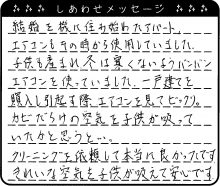 しあわせメッセージ
結婚を機に住み始めたアパート。
エアコンもその時から使用していました。
子供も産まれ冬は寒くないようバンバン
エアコンを使っていました。一戸建てを
購入し引越す際エアコンを見てビックリ。
カビだらけの空気を子供が吸って
いたかと思うと…。
クリーニングを依頼して本当に良かったです
きれいな空気を子供が吸えて安心です